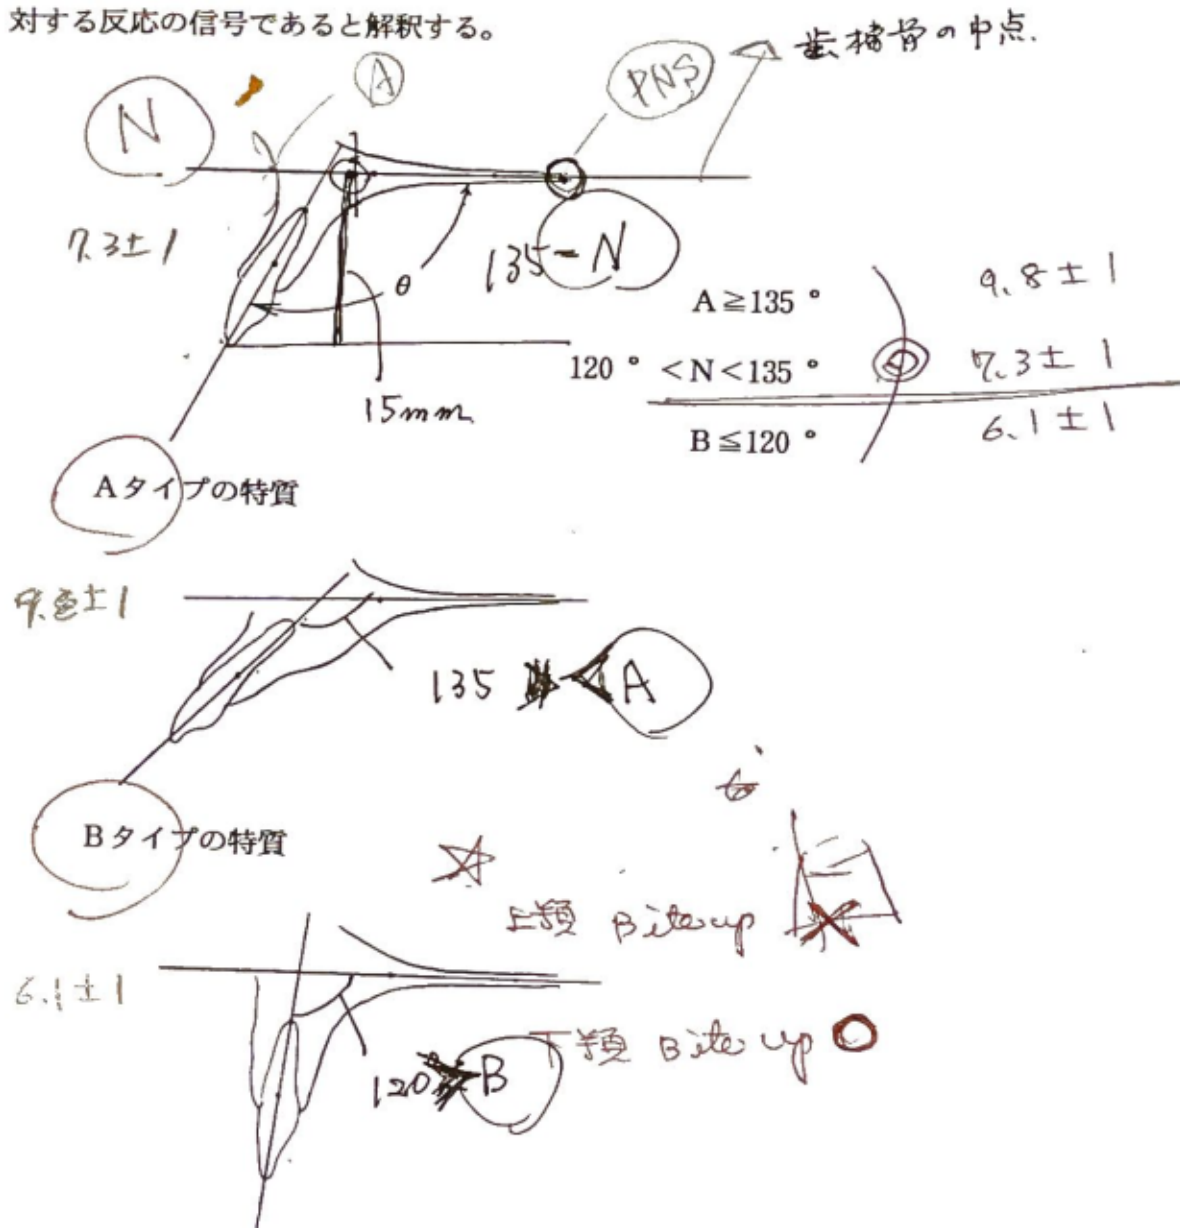 対する反応の信号であると解釈する。
歯槽骨の中点.
A
PNS
N
7.3±1
135-N
θ
15mm
A≧135° 9.8±1
120°<N<135° 7.3±1
B≦120° 6.1±1
Aタイプの特質
±1
135 A
Bタイプの特質
上顎 Bite up
6.1±1
下顎 Bite up
120 B